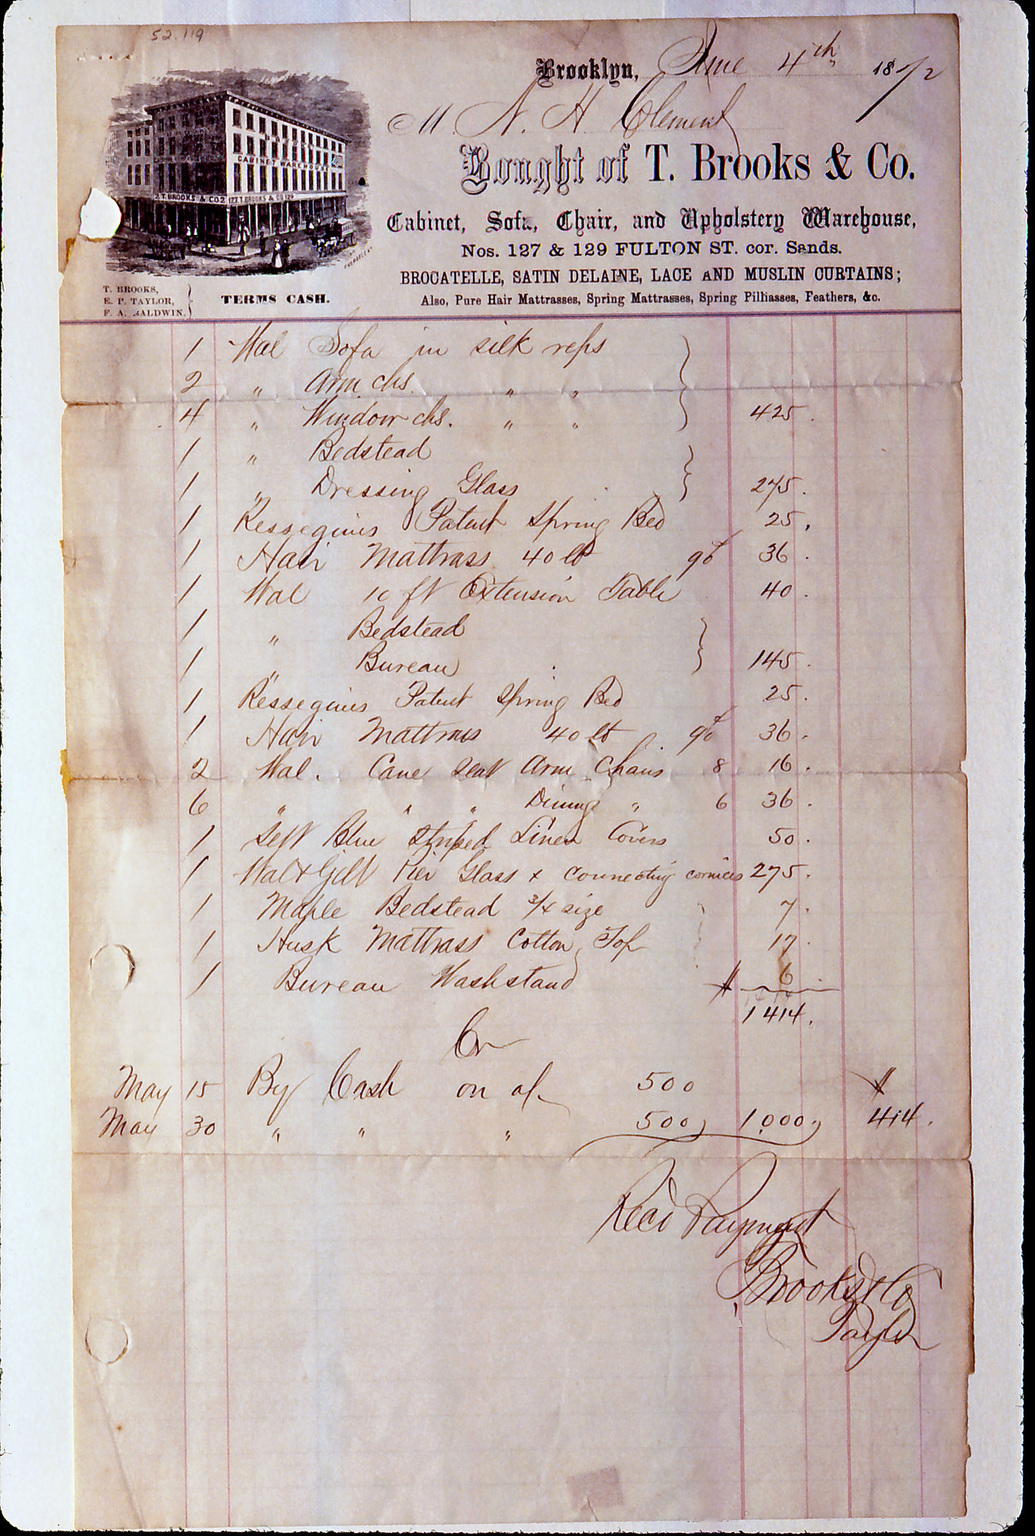 52.119
Brooklyn, June 4th 1872
M N. H. Clement
Bought of T. Brooks & Co.
Cabinet, Sofa, Chair, and Upholstery Warehouse,
Nos. 127 & 129 FULTON ST. cor. Sands.
BROCATELLE, SATIN DELAINE, LACE AND MUSLIN CURTAINS;
Also, Pure Hair Mattrasses, Spring Mattrasses, Spring Pilliasses, Feathers, &c.
T. BROOKS & CO. 127 T. BROOKS & CO. 129
T. BROOKS,
E. P. TAYLOR,
F. A. BALDWIN.
TERMS CASH.
1 Wal Sofa in silk reps
2 " Arm chs. " "
4 " Window chs. " " 425.
1 " Bedstead
1 " Dressing Glass 275.
1 Resseguius Patent Spring Bed 25.
1 Hair Mattrass 40 lb 90 36.
1 Wal 10 ft Extension Table 40.
1 " Bedstead
1 " Bureau 145.
1 Resseguius Patent Spring Bed 25.
1 Hair Mattrass 40 lb 90 36.
2 Wal. Cane Seat Arm Chairs 8 16.
6 " " " Dining " 6 36.
1 Sett Blue Striped Linen Covers 50.
1 Wal & Gilt Pier Glass & connecting cornices 275.
1 Maple Bedstead 3/4 size 7.
1 Husk Mattrass Cotton Top 17.
1 Bureau Washstand 6
$ 1414.
Cr
May 15 By Cash on a/c 500 $
May 30 " " " 500 1,000 414.
Rec'd Payment
Brooks & Co
Taylor